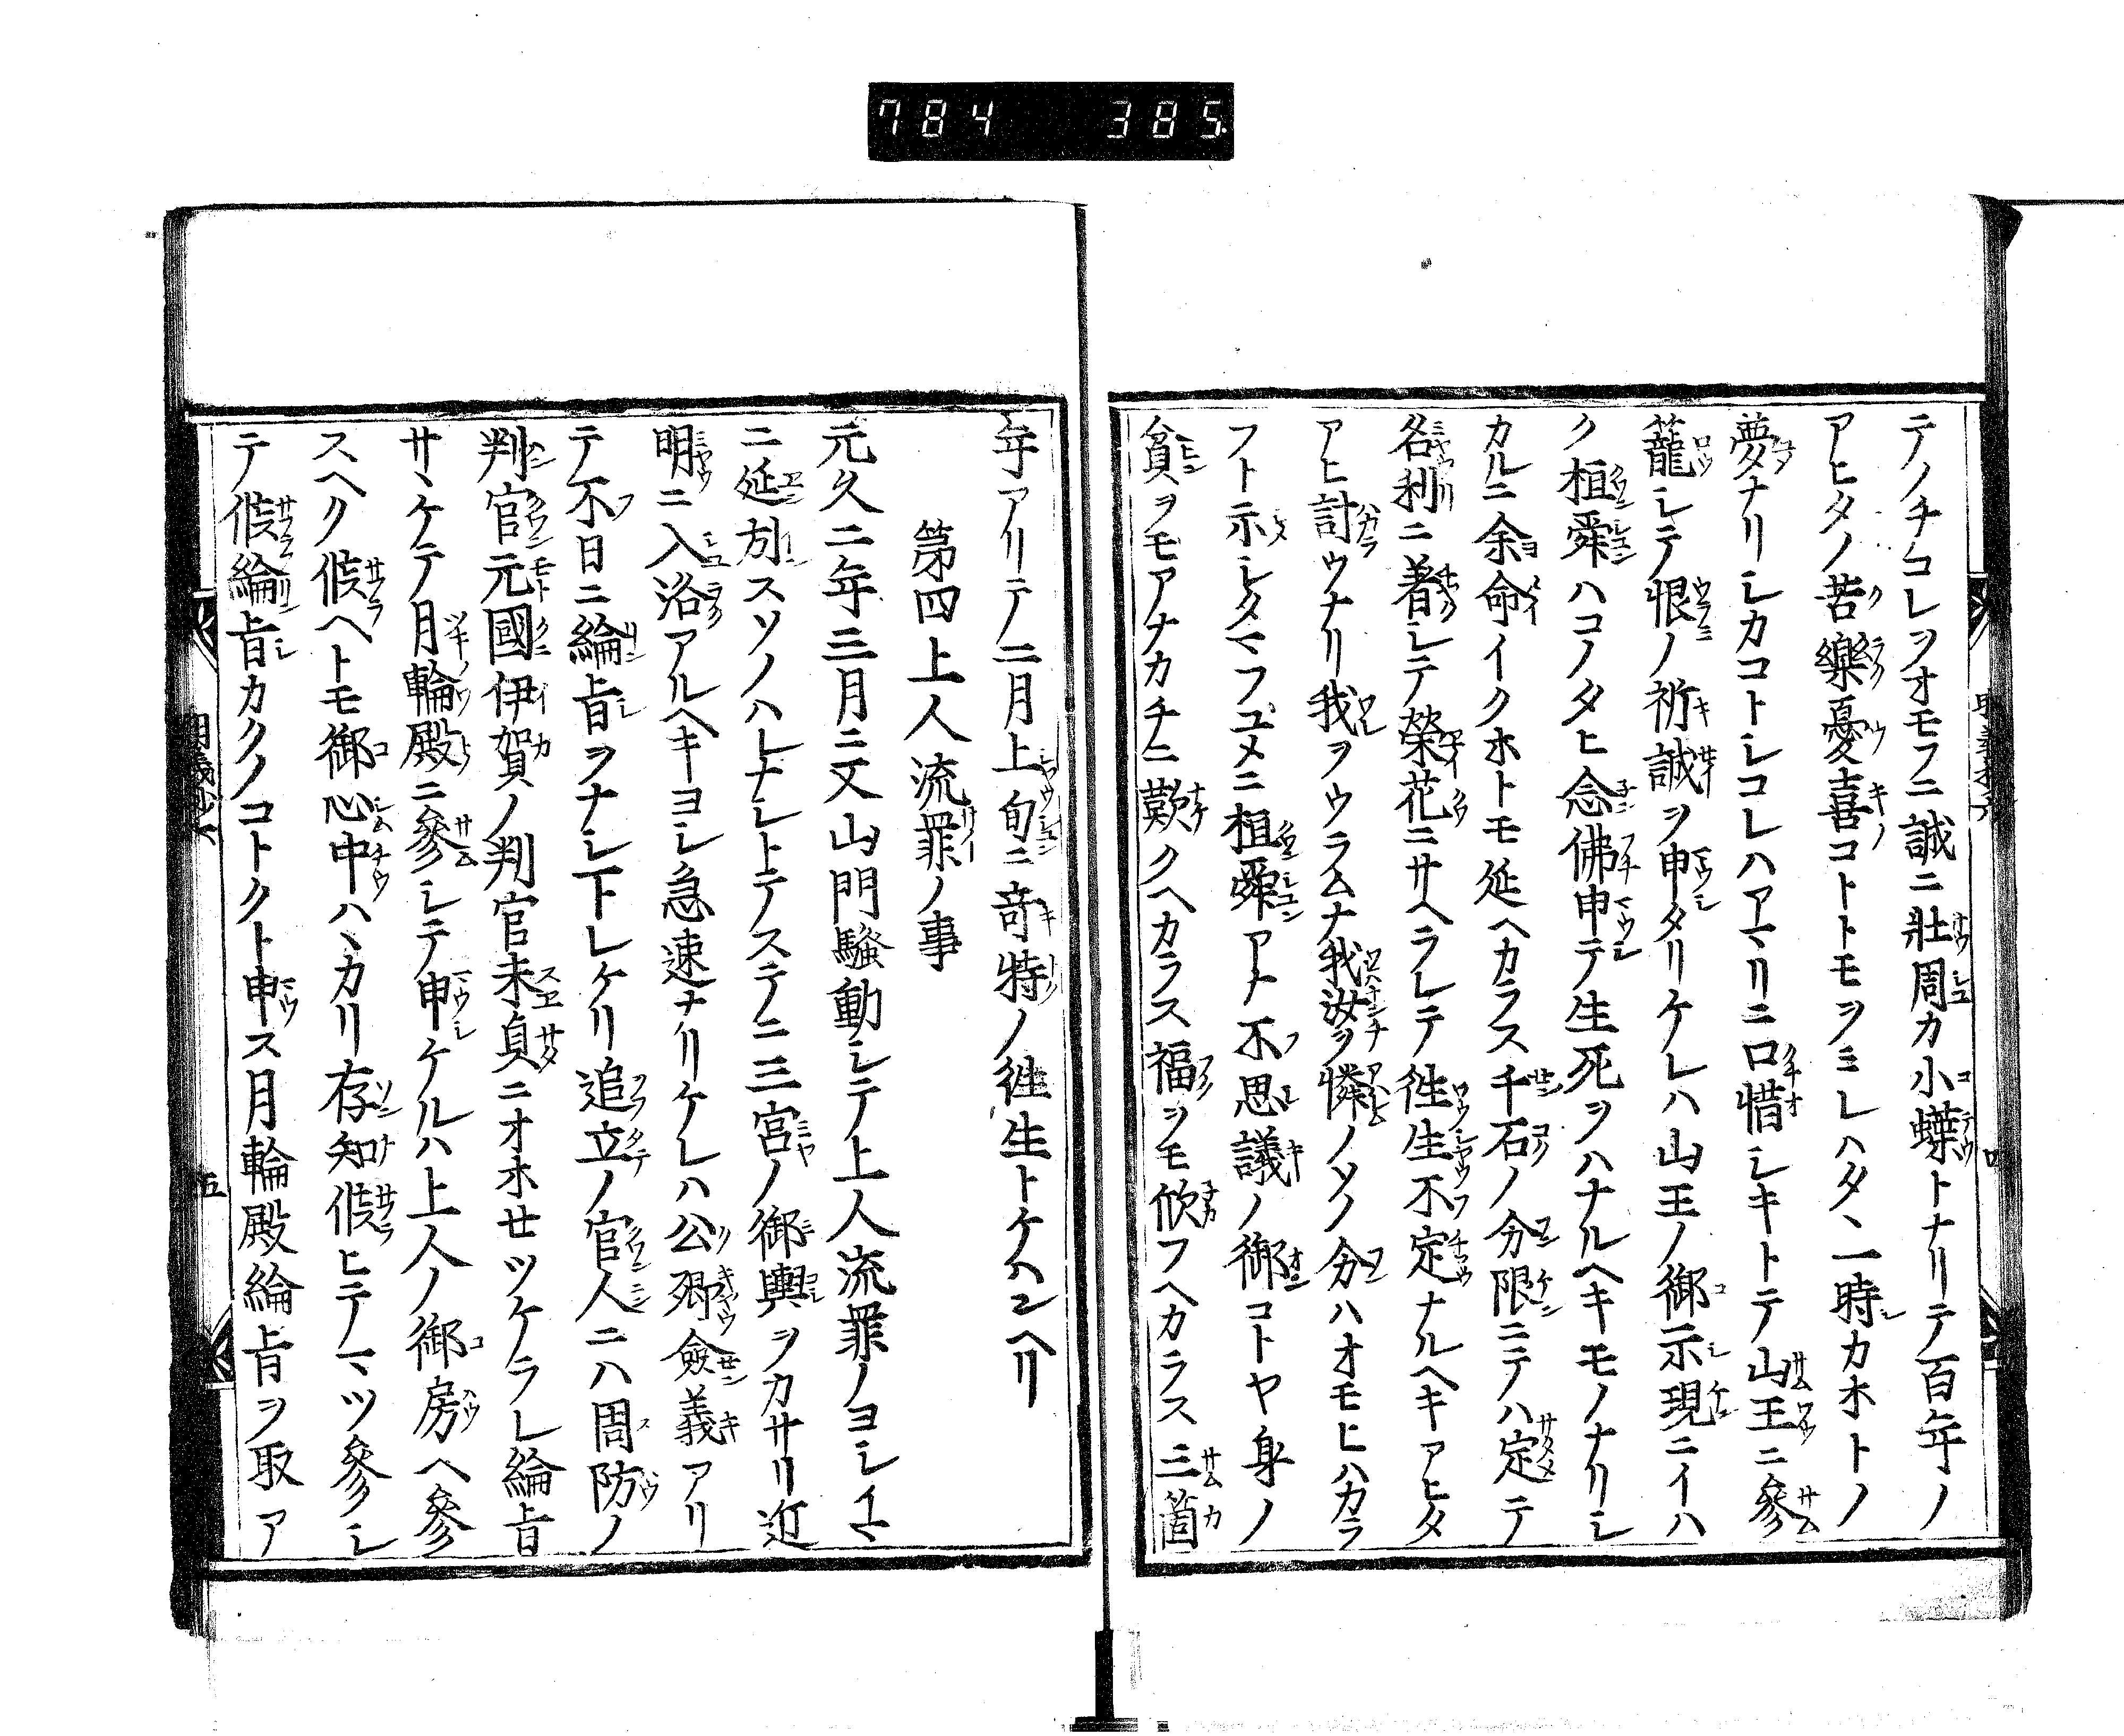 784 385
テノチコレヲオモフニ誠ニ壯周カ小蝶トナリテ百年ノ
アヒタノ苦樂憂喜コトトモヲミレハタヽ一時カホトノ
夢ナリシカコトシコレハアマリニ口惜シキトテ山王ニ參
籠シテ恨ノ祈誠ヲ申タリケレハ山王ノ御示現ニイハ
ク桓舜ハコノタヒ念佛申テ生死ヲハナルヘキモノナリシ
カルニ余命イクホトモ延ヘカラス千石ノ分限ニテハ定テ
名利ニ着シテ榮花ニサヘラレテ徃生不定ナルヘキアヒタ
アヒ計ウナリ我ヲウラムナ我汝ヲ憐ノソノ分ハオモヒハカラ
フト示シタマフユメニ桓舜アナ不思議ノ御コトヤ身ノ
貧ヲモアナカチニ歎クヘカラス福ヲモ欣フヘカラス三箇
年アリテ二月上旬ニ竒特ノ徃生トケ給ヘリ
第四上人流罪ノ事
元久二年三月ニ又山門騷動シテ上人流罪ノヨシイマ
ニ延引スソノハレナシトテステニ三宮ノ御輿ヲカサリ近
明ニ入洛アルヘキヨシ急速ナリケレハ公卿僉義アリ
テ不日ニ綸旨ヲナシ下レケリ追立ノ官人ニハ周防ノ
判官元國伊賀ノ判官末貞ニオホセツケラレ綸旨
サヽケテ月輪殿ニ參シテ申ケルハ上人ノ御房ヘ參
スヘク候ヘトモ御心中ハヽカリ存知候ヒテマツ參シ
テ候綸旨カクノコトクト申ス月輪殿綸旨ヲ取ア
五